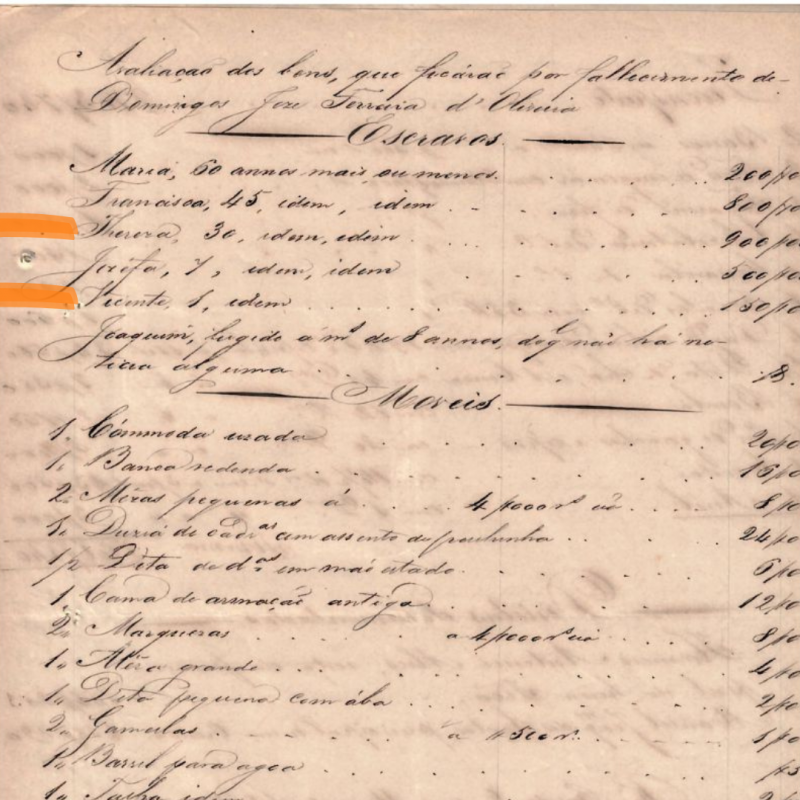 Avaliação dos bens, que ficárão por fallecimento de
Domingos Joze Ferreira d'Oliveira
Escravos.
Maria, 60 annos mais ou menos. 200$00
Francisca, 45, idem, idem 800$00
Thereza, 30, idem, idem 900$00
Jozefa, 7, idem, idem 500$00
Vicente, 1, idem 150$00
Joaquim, fugido á ms de 8 annos, do q não há no-
ticia alguma $
Moveis.
1, Cómmoda uzada 20$0
1, Banca redonda 15$0
2, Mezas pequenas á 4$000 rs 8$0
1, Duzia de cadras com assento de palhinha 24$0
1/2 Dita de das em máo estado 6$0
1, Cama de armação antiga 12$0
2, Marquezas a 4$000 rs 8$0
1, Meza grande 4$0
1, Dita pequena com aba 2$0
2, Gamellas a $500 rs 1$0
1, Barril para agoa
1, Talha idem